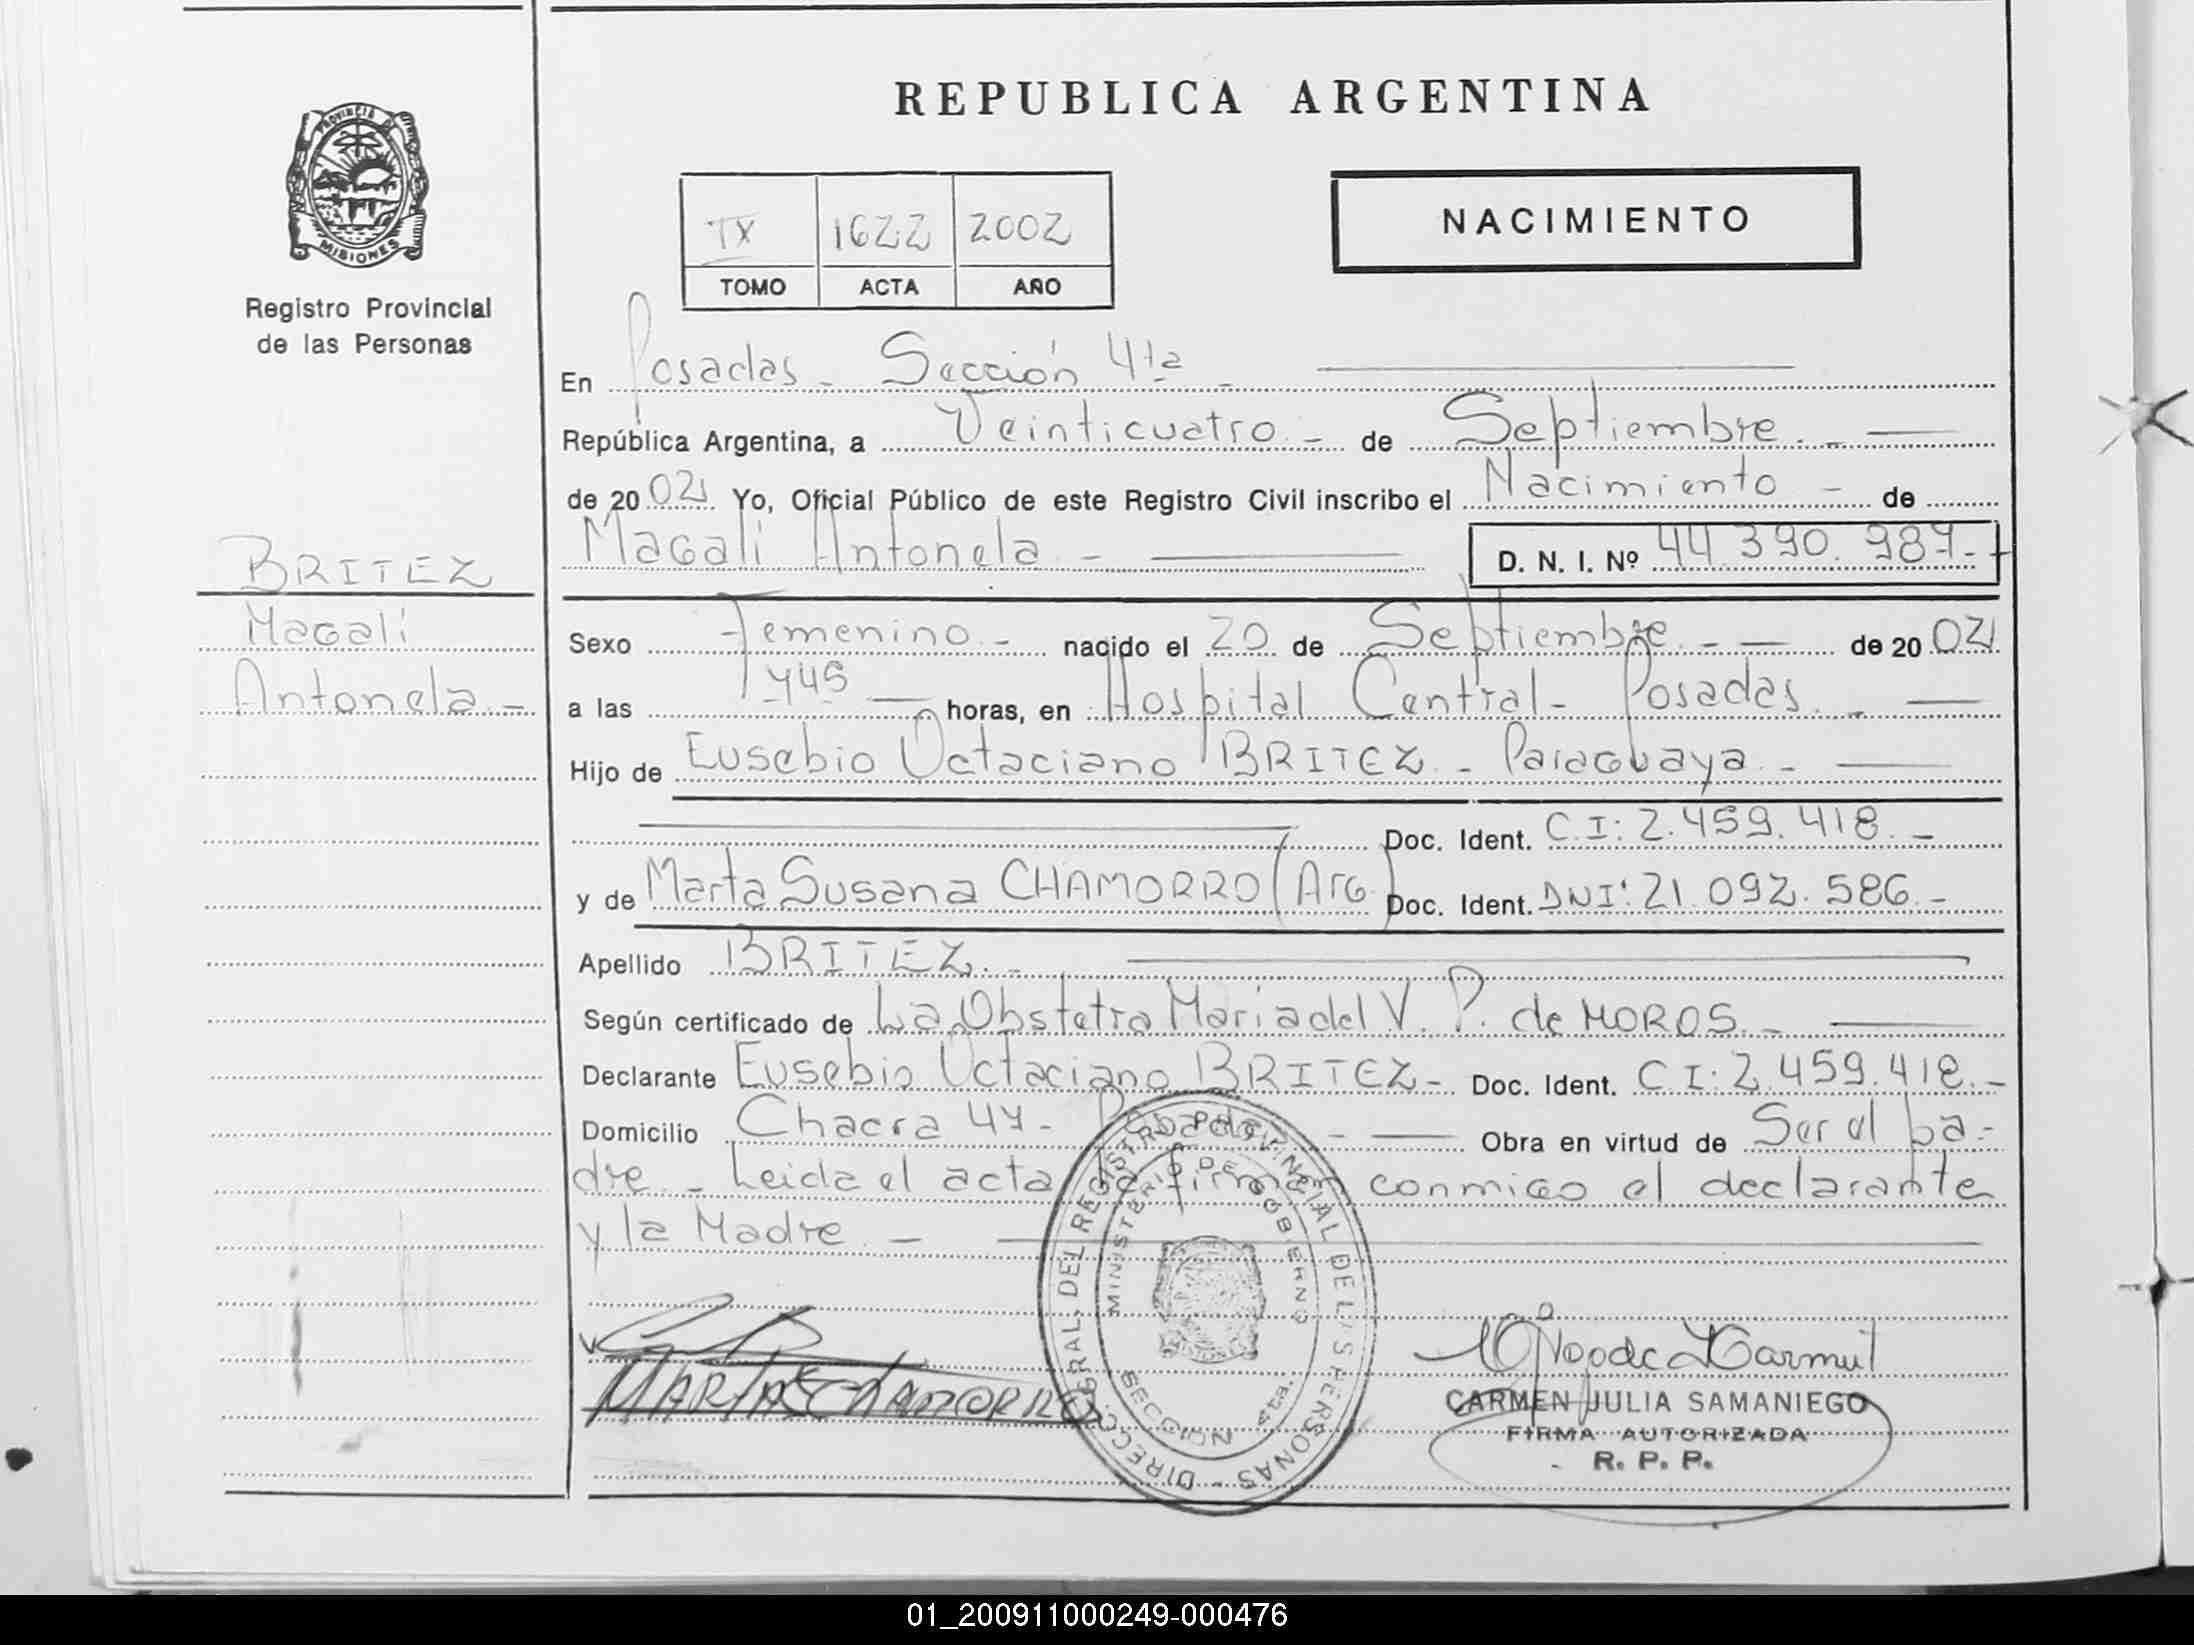 REPUBLICA ARGENTINA
PROVINCIA DE
MISIONES
Registro Provincial
de las Personas
TX 1622 2002
TOMO ACTA AÑO
NACIMIENTO
En Posadas - Sección 4ta -
República Argentina, a Veinticuatro - de Septiembre. -
de 20 02 Yo, Oficial Público de este Registro Civil inscribo el Nacimiento - de
Magali Antonela - D. N. I. Nº 44.390.987.-
BRITEZ
Magalí
Antonela. -
Sexo Femenino. - nacido el 20 de Septiembre. - de 20 02
a las 745 horas, en Hospital Central - Posadas. -
Hijo de Eusebio Octaciano BRITEZ - Paraguaya. -
Doc. Ident. C.I: 2.459.418. -
y de Marta Susana CHAMORRO (Arg.) Doc. Ident. DNI: 21.092.586. -
Apellido BRITEZ. -
Según certificado de La Obstetra Maria del V. P. de MOROS. -
Declarante Eusebio Octaciano BRITEZ - Doc. Ident. C I: 2.459.418. -
Domicilio Chacra 47 - Posadas - Obra en virtud de Ser el pa-
dre - Leida el acta la firman conmigo el declarante
y la Madre. -
MARTA S CHAMORRO
DIRECC. GRAL. DEL REGISTRO PROVINCIAL DE LAS PERSONAS -
MINISTERIO DE GOBIERNO
SECCION 4ta.
CARMEN JULIA SAMANIEGO
FIRMA AUTORIZADA
R. P. P.
01_200911000249-000476